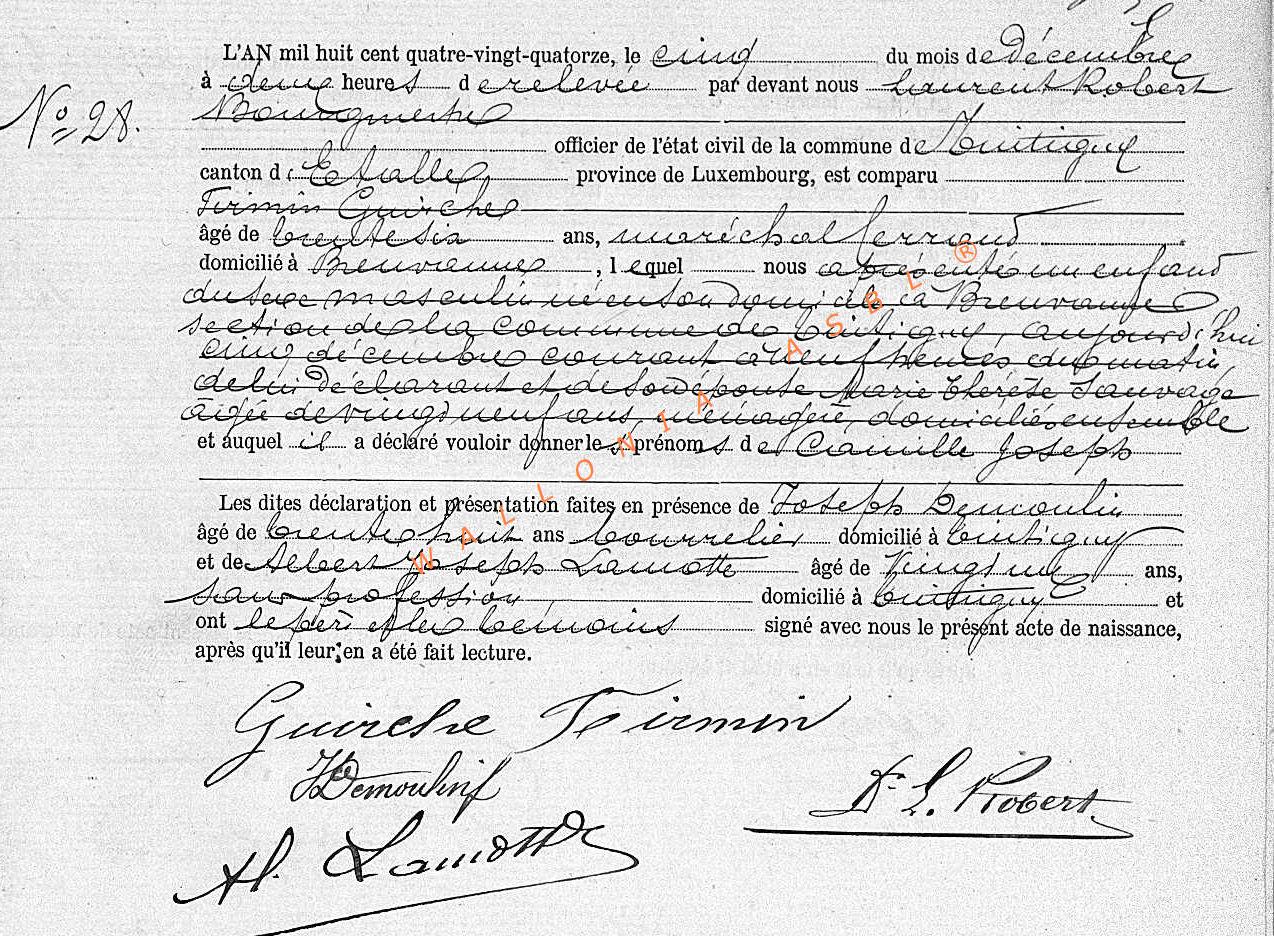 L'AN mil huit cent quatre-vingt-quatorze, le cinq du mois de Décembre
à deux heures de relevée par devant nous Laurent Robert
No 28.
Bourgmestre
officier de l'état civil de la commune de Tintigny
canton d'Etalle, province de Luxembourg, est comparu
Firmin Guirche
âgé de trente six ans, maréchal ferrand
domicilié à Breuvanne, lequel nous a présenté un enfant
du sexe masculin né en son domicile à Breuvanne
section de la commune de Tintigny, aujourd'hui
cinq décembre courant à neuf heures du matin,
de lui Déclarant et de son épouse Marie Thérèse Sauvage
âgée de vingt neuf ans, ménagère, domiciliés ensemble
et auquel il a déclaré vouloir donner les prénoms de Camille Joseph
Les dites déclaration et présentation faites en présence de Joseph Demoulin
âgé de trente huit ans bourrelier domicilié à Tintigny
et de Albert Joseph Lamotte âgé de Vingt un ans,
sans profession, domicilié à Tintigny et
ont le père et les témoins signé avec nous le présent acte de naissance,
après qu'il leur en a été fait lecture.
WALLONIA ASBL ®
Guirche Firmin
J Demoulin
Dr L. Robert
Al. Lamotte